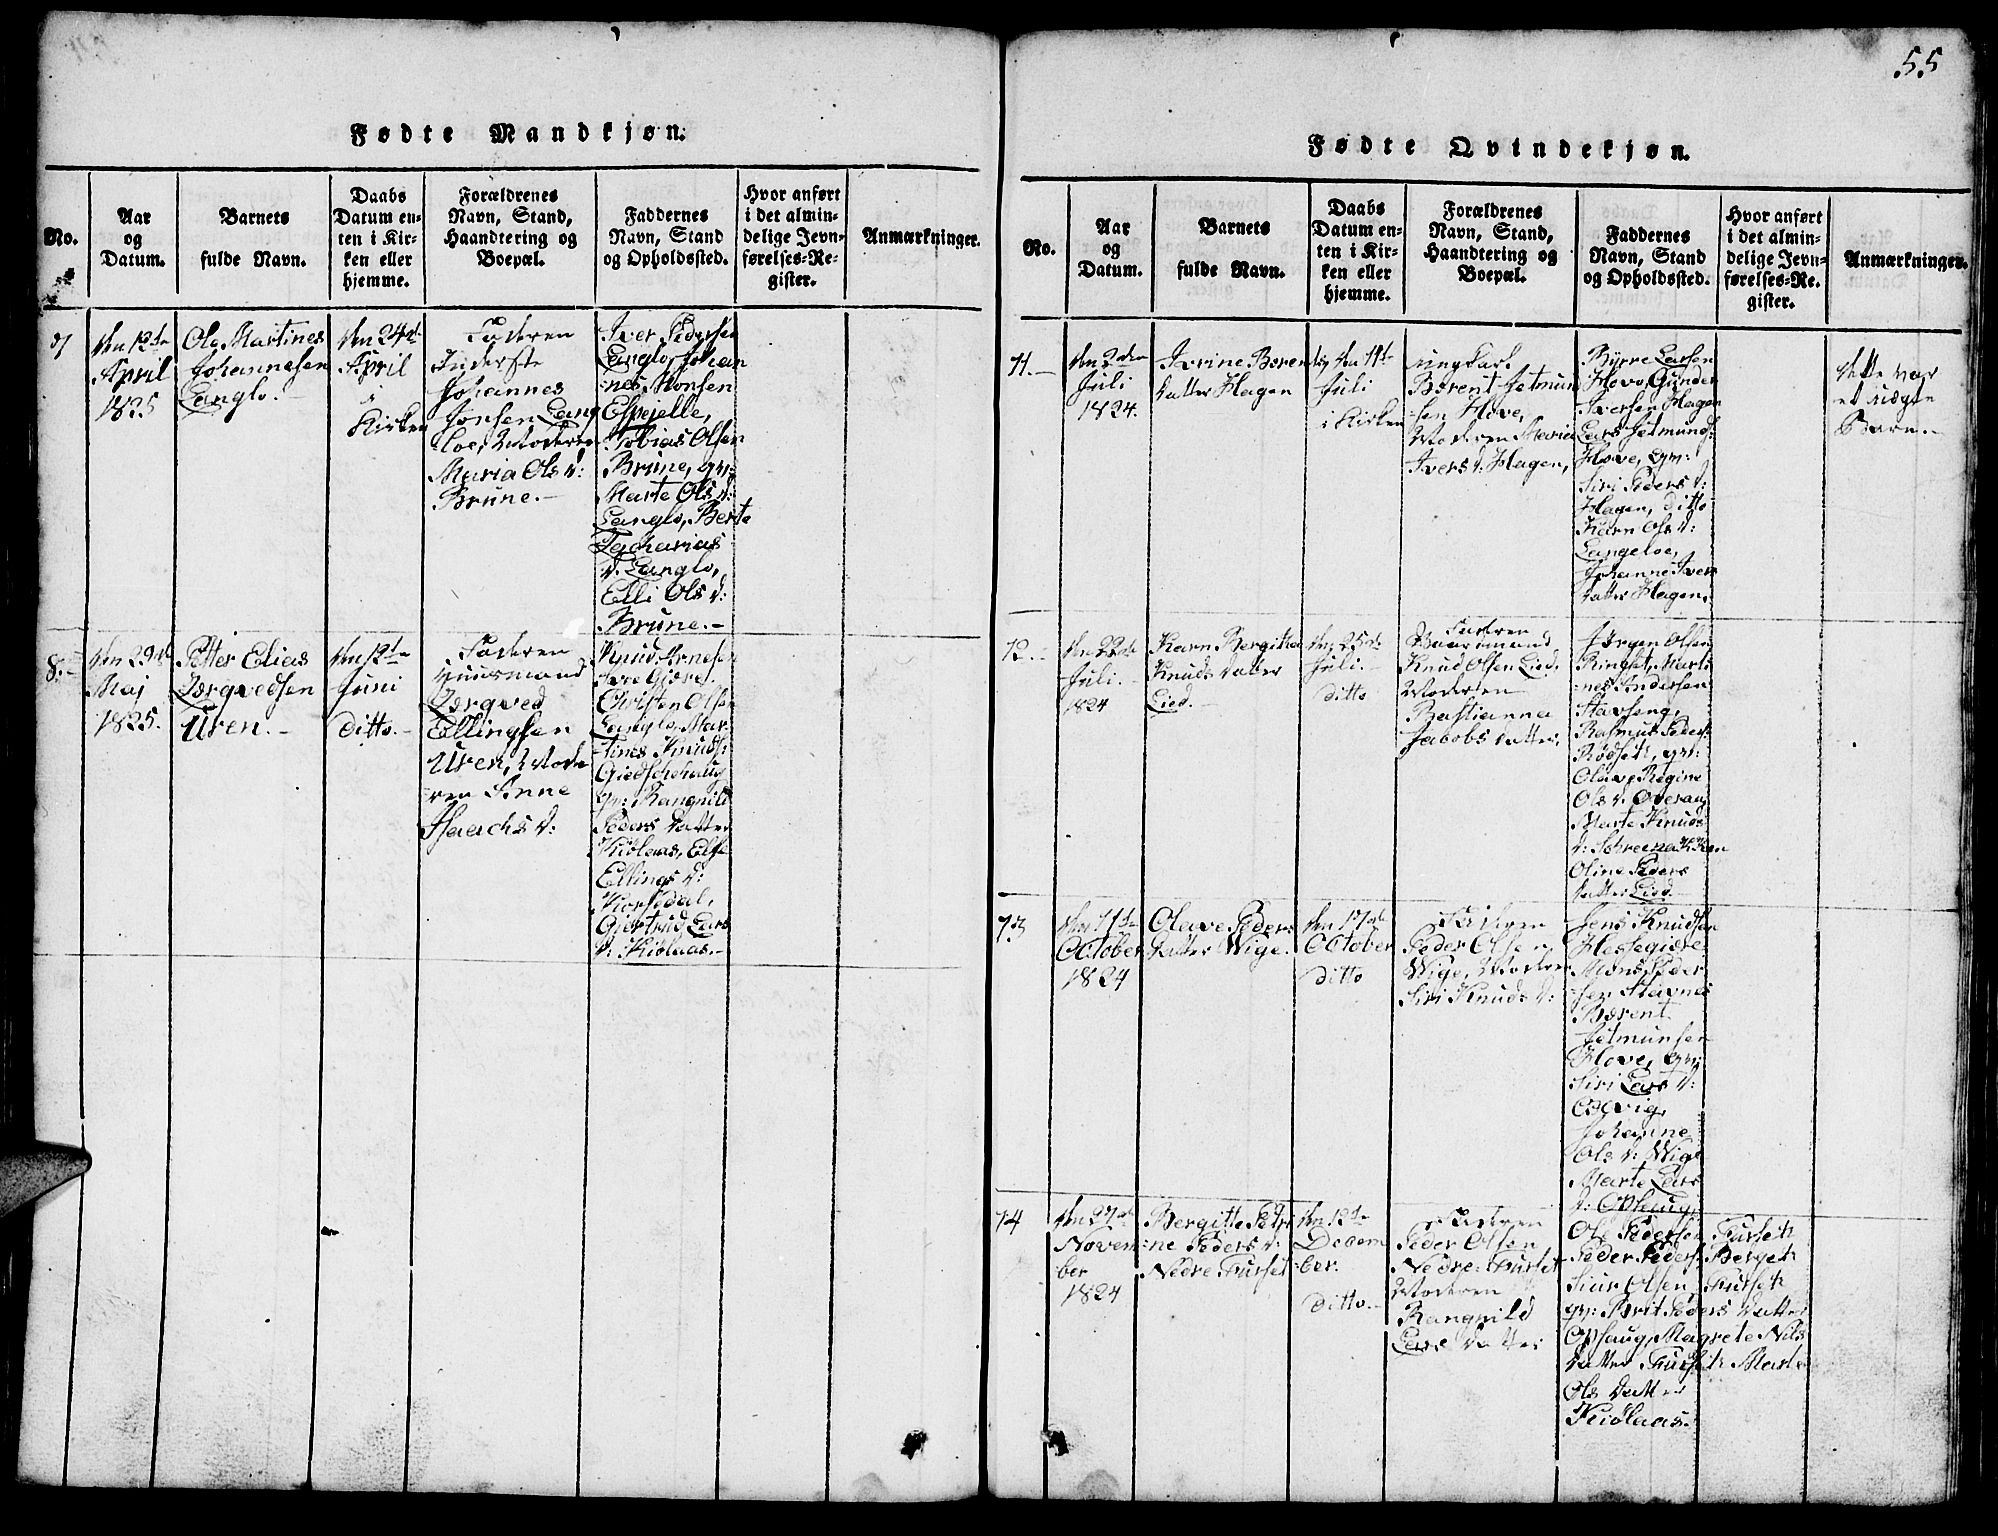 55
Fødte Mandkjøn.
No.
Aar
og
Datum.
Barnets
fulde Navn.
Daabs
Datum en-
ten i Kir-
ken eller
hjemme.
Forældrenes
Navn, Stand,
Haandtering og
Boepæl.
Faddernes
Navn, Stand
og Opholdssted.
Hvor anført
i det almin-
delige Jevn-
førelses-Re-
gister.
Anmærkninger.
7
den 12te
April
1825
Ole Martines
Johannesen
Langlo.-
den 24de
April
i
Kirken
Faderen
Inderste
Johannes
Jonsen Lang
loe, Moderen
Maria Ols d:
Brune.-
Iver Pedersen
Langlo, Johan
=nes Monsen
Espejelle,
Tobias Olsen
Brune, qv:
Marte Ols d:
Langlo, Berte
Zacharias
d. Langlo,
Elli Ols d:
Brune.-
8.-
den 29de
Maj
1825.
Petter Elias
Lergvedsen
Uren.-
den 12te
Juni
ditto.-
Faderen
Huusmand
Lergved
Ellingsen
Uren, Mode
ren Anne
Isaachs d:
Knud Arnesen
Christen Olsen
Langlo, Mar
tines Knuds:
qv: Rangnild
Peders Datter
Kiølaas, Else
Ellings d:
Korsedal,
Giertrud Lars
d: Kiølaas.-
Fødte Qvindekjøn.
No.
Aar
og
Datum.
Barnets
fulde Navn.
Daabs
Datum en-
ten i Kir-
ken eller
hjemme.
Forældrenes
Navn, Stand,
Haandtering og
Boepæl.
Faddernes
Navn, Stand
og Opholdssted.
Hvor anført
i det almin-
delige Jevn-
førelses-Re-
gister.
Anmærkninger.
11.-
den 2den
Juli
1824.
Ivrine Beren
datter Hagen
den 11te
Juli
i Kirken
ungkarl
Berent Jetmun
sen Hove,
Moderen Maria
Ivers d: Hagen,
Byrre Larsen
Hove, Gunder
Iversen Hagen
Lars Jetmunds:
Hove, qv:
Siri Peders d:
Hagen, ditto
Karn Ols d:
Langeloe,
Johanne Ivers
datter Hagen.
dette var
et uægte
Barn.-
12.-
den 22de
Juli.
1824
Karn Bergitha
Knuds datter
Lied.-
den 25de
Juli.-
ditto
Faderen
Gaardmand
Knud Olsen Lied.
Moderen
Bastianna
Jacobs datter,
Jørgen Olsen
Ringset, Marti
=nes Andersen
Stavseng,
Rasmus Peders:
Rødseth, qv:
Olave Regine
Ols d. Overaag
Marte Knuds
Oline Peders
datter Lied
13
den 11te
October
1824
Olave Peders
datter Wige.
den 17de
October
ditto
Faderen
Peder Olsen
Wige, Moderen
Siri Knuds d:
Jens Knudsen
Hessegiære
Mons Peder
sen Stavnes
Bærent
Jetmunsen
Hove, qv:
Siri Lars d:
Johanne
Ols d: Wige
Marte Lars
d: Ophaug,
14
den 27de
Novem
ber
1824
Bergitte Petri
=ne Peders d:
Nedre Furset
den 12te
Decem
ber.
ditto.-
Faderen
Peder Olsen
Nedre: Furset
Moderen
Rangnild
Lars Datter
Ole Pedersen Furseth
Peder Peders: Bergeth
Siur Olsen Furseth
qv: Brit Peders Datter
Ophaug, Magrete Nils
Datter Furseth Marte
Ols Datter
Kiølaas.